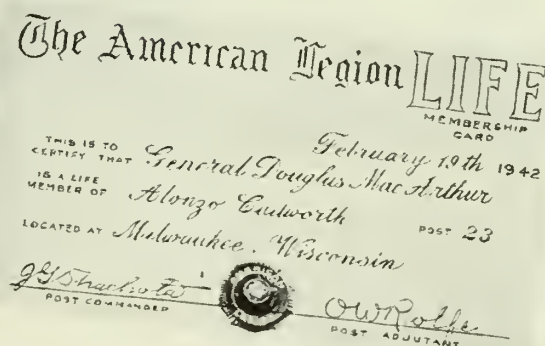 The American Legion LIFE
MEMBERSHIP
CARD
February 19th 1942
THIS IS TO
CERTIFY THAT General Douglas MacArthur
IS A LIFE
MEMBER OF Alonzo Cudworth POST 23
LOCATED AT Milwaukee, Wisconsin
POST COMMANDER
OW Rolfe
POST ADJUTANT